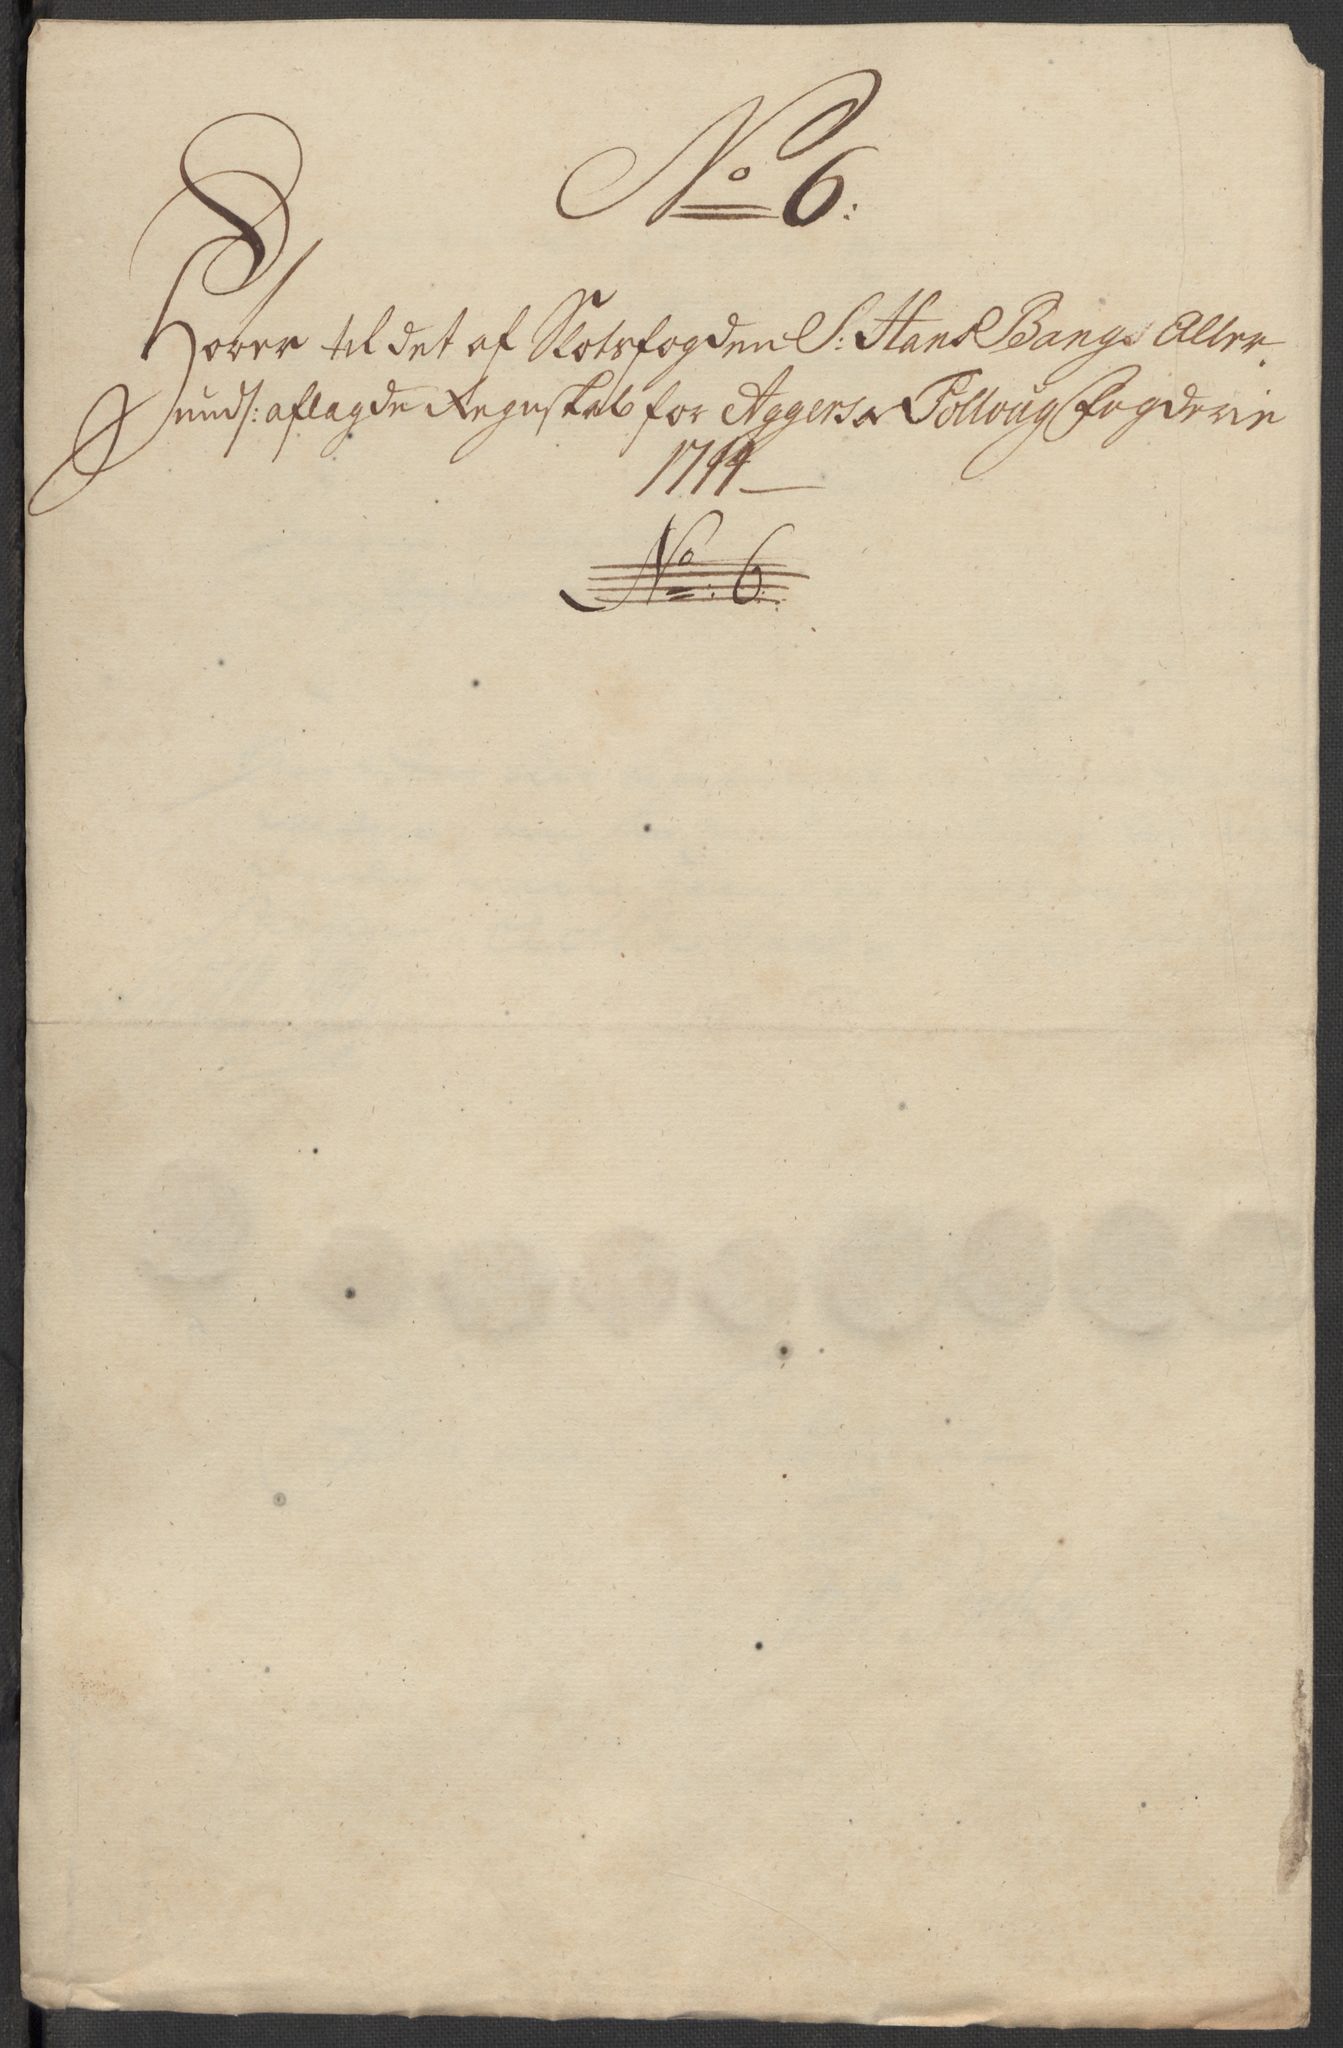 No 6:
Hører til det af Slotsfogden S: Hans Bangs Aller
und: aflagde Regnskab for Aggers Folloug Fogderie
1714
No: 6